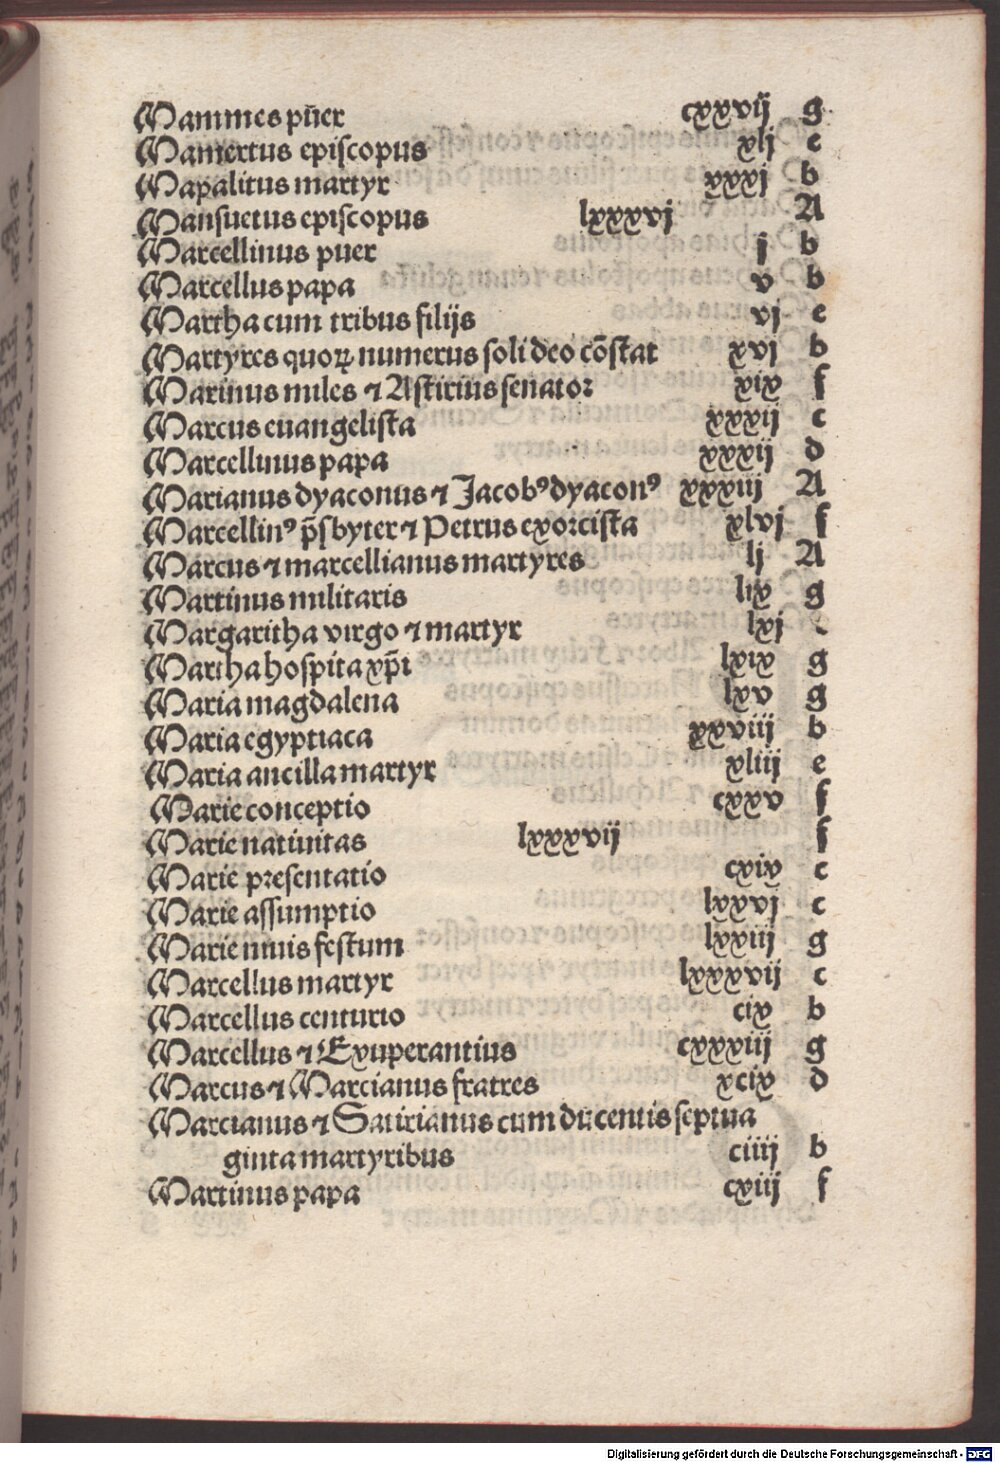 Mammes pűer cxxvij g
Mamertus episcopus xlj c
Mapalitus martyr xxxj b
Mansuetus episcopus lxxxvj A
Marcellinus puer j b
Marcellus papa v b
Martha cum tribus filijs vj e
Martyres quoꝝ numerus soli deo cõstat xvj b
Marinus miles ⁊ Astirius senator xix f
Marcus euangelista xxxij c
Marcellinus papa xxxij d
Marianus dyaconus ⁊ Jacobꝰ dyaconꝰ xxxiij A
Marcellinꝰ p̄sbyter ⁊ Petrus exorcista xlvj f
Marcus ⁊ marcellianus martyres lj A
Martinus militaris lix g
Margaritha virgo ⁊ martyr lxj
Martha hospita xp̄i lxix g
Maria magdalena lxv g
Maria egyptiaca xxviij b
Maria ancilla martyr xliij e
Marie conceptio cxxv f
Marie natiuitas lxxxvij f
Marie presentatio cxix c
Marie assumptio lxxvj c
Marie niuis festum lxxiij g
Marcellus martyr lxxxvij c
Marcellus centurio cix b
Marcellus ⁊ Exuperantius cxxxiij g
Marcus ⁊ Marcianus fratres xcix d
Marcianus ⁊ Satirianus cum ducentis septua
ginta martyribus ciiij b
Martinus papa cxiij f
Digitalisierung gefördert durch die Deutsche Forschungsgemeinschaft - DFG